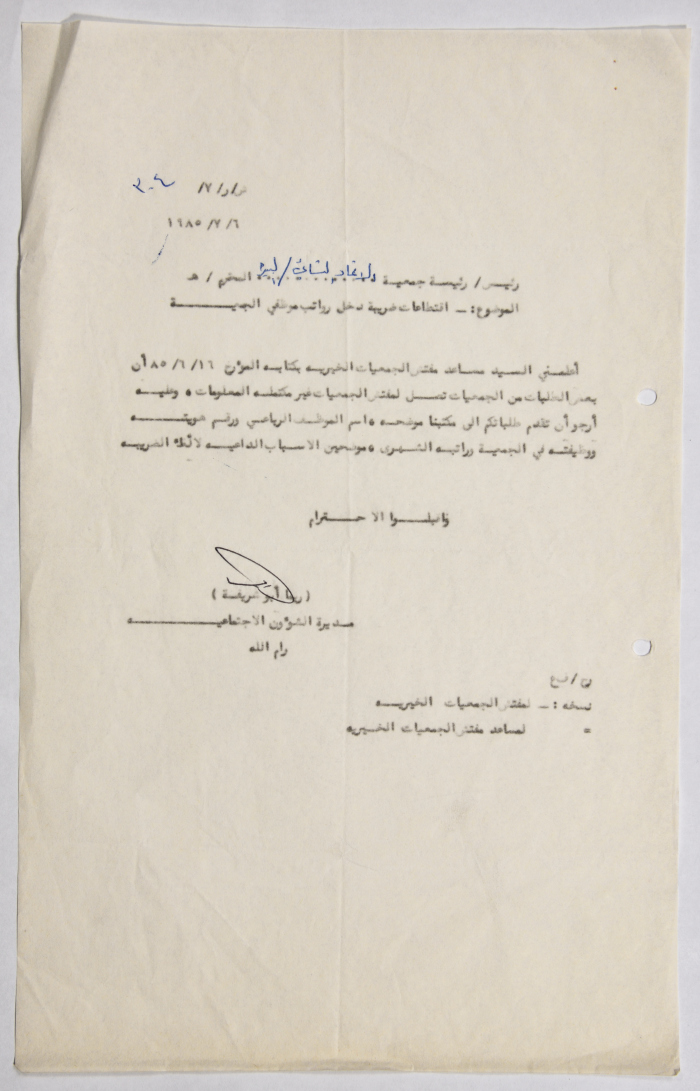 ش/و/ ٧/ ٣٠٤
١٩٨٥ /٧ /٦
رئيس/ رئيسة جمعية الاتحاد النسائي/البيرة المحترم / هـ
الموضوع: ـ اقتطاعات ضريبة دخل رواتب موظفي الجمعيــــة
أعلمني السيد مساعد مفتش الجمعيات الخيريه بكتابه المؤرخ ٨٥/٦/١٦ أن
بعض الطلبات من الجمعيات تصل لمفتش الجمعيات غير مكتمله المعلومات ، وعليه
أرجو أن تقدم طلباتكم الى مكتبنا موضحه ، اسم الموظف الرباعي ورقم هويتـــه
ووظيفتــه في الجمعية وراتبه الشهرى ، موضحين الاسباب الداعيــه لاقطاع الضريبه
واقبلــــوا الاحــــترام
( ريما أبو شريفة )
مــديرة الشؤون الاجتماعيـــــه
رام الله
نسخه : ـ لمفتش الجمعيات الخيريـــه
= لمساعد مفتش الجمعيات الخــيريه